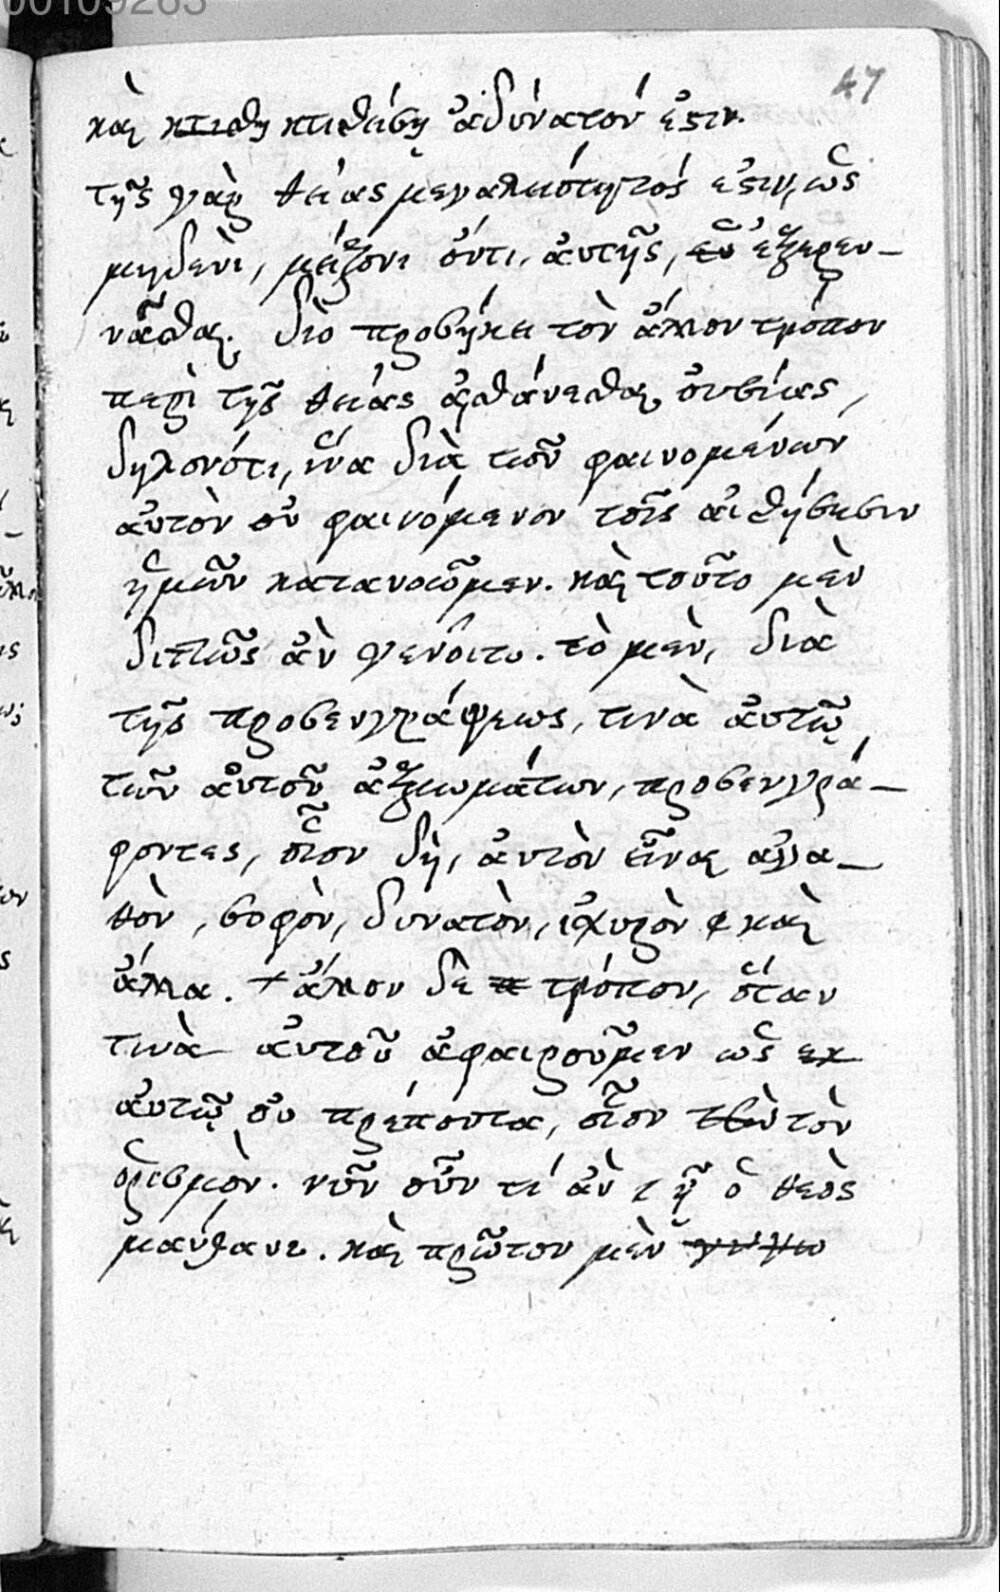 00109263
47
καὶ κτισθείσῃ ἀδύνατόν ἐστιν.
τῆς γὰρ θείας μεγαλειότητός ἐστιν, ὡς
μηδενὶ, μείζονι ὄντι, αὐτῆς, ἐξερευ-
νᾶσθαι. διὸ προσήκει τὸν ἄλλον τρόπον
περὶ τῆς θείας αἰσθάνεσθαι οὐσίας,
δηλονότι, ἵνα διὰ τῶν φαινομένων
αὐτὸν οὐ φαινόμενον τοῖς αἰσθήσεσιν
ἡμῶν κατανοῶμεν. καὶ τοῦτο μὲν
διττῶς ἂν γένοιτο. τὸ μὲν, διὰ
τῆς προσεγγράψεως, τινὰ αὐτῷ
τῶν αὐτοῦ ἀξιωμάτων, προσεγγρά-
φοντες, οἷον δὴ, αὐτὸν εἶναι αγα-
θὸν, σοφὸν, δυνατὸν, ἰσχυρὸν καὶ
ἄλλα. + ἄλλον δὲ τρόπον, ὅταν
τινὰ αὐτοῦ ἀφαιροῦμεν ὡς
αὐτῷ οὐ πρέποντα, οἷον τὸν
ὁρισμὸν. νῦν οὖν τί ἂν ᾖ ὁ θεὸς
μάνθανε. καὶ πρῶτον μὲν